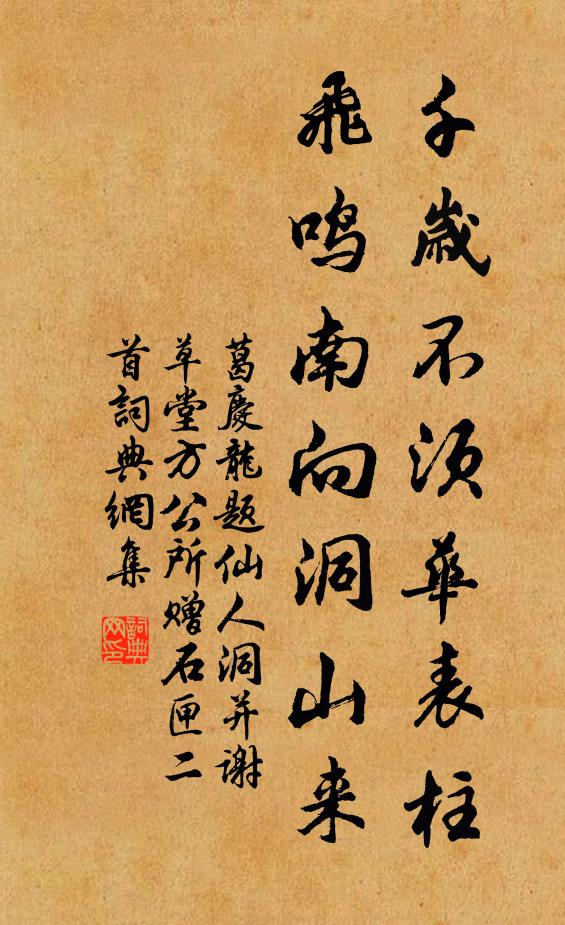 千歲不須華表柱
飛鳴南向洞山来
葛慶龍题仙人洞并謝
草堂方公所赠石匣二
首詞典網集
詞典网印